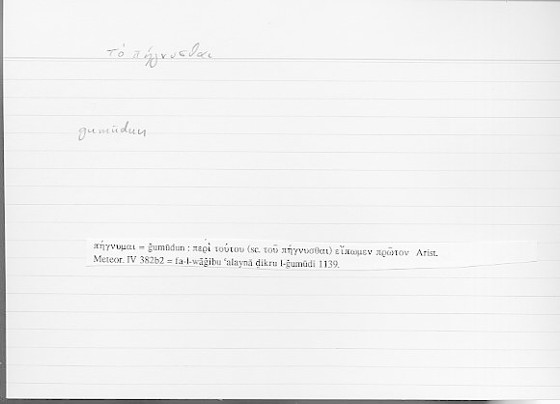 τὸ πήγνυσθαι
ǧumūdun
πήγνυμαι = ǧumūdun : περὶ τούτου (sc. τοῦ πήγνυσθαι) εἴπωμεν πρῶτον Arist.
Meteor. IV 382b2 = fa-l-wāǧibu ʿalaynā ḏikru l-ǧumūdi 1139.